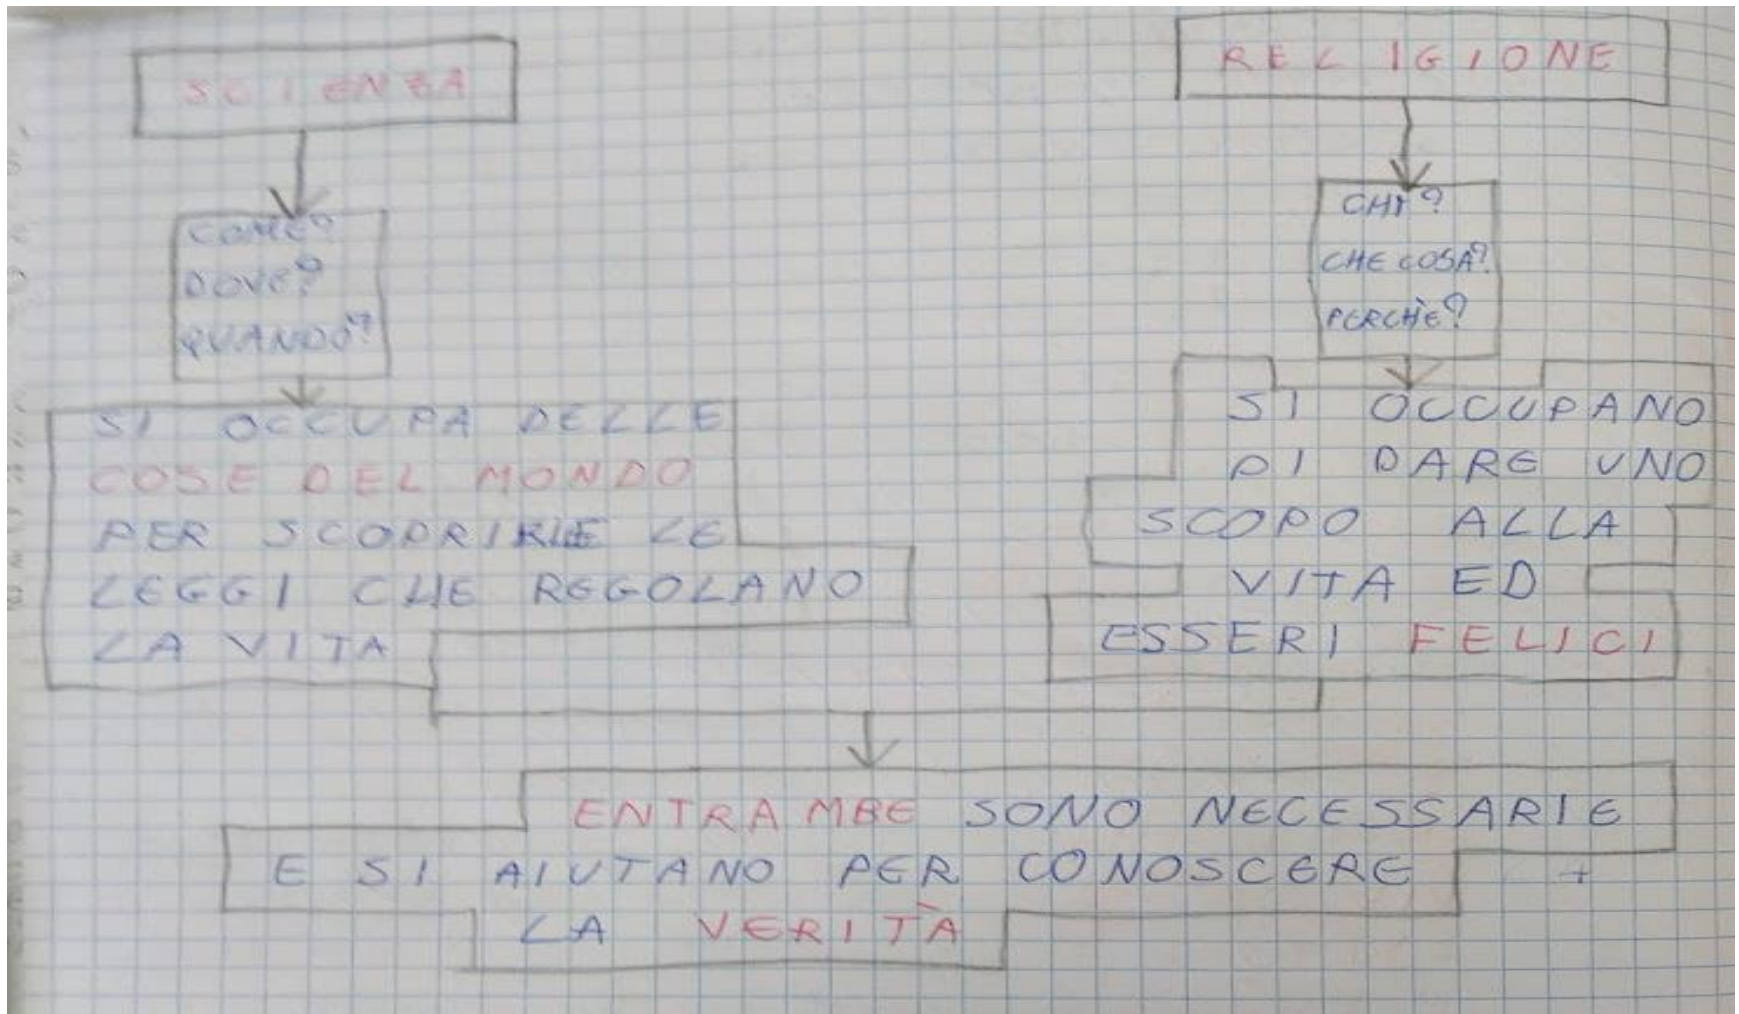 SCIENZA
COME?
DOVE?
QUANDO?
SI OCCUPA DELLE
COSE DEL MONDO
PER SCOPRIRLE LE
LEGGI CHE REGOLANO
LA VITA
RELIGIONE
CHI?
CHE COSA?
PERCHÈ?
SI OCCUPANO
DI DARE UNO
SCOPO ALLA
VITA ED
ESSERI FELICI
ENTRAMBE SONO NECESSARIE
E SI AIUTANO PER CONOSCERE
LA VERITÀ